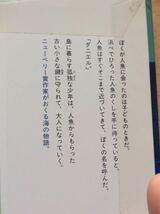 ぼくが人魚に会ったのは子どものときだ。
浜べでひろった人魚のくしを手に持っていると、
人魚はすぐそこまで近づいてきて、ぼくの名を呼んだ。
「ダニエル」
島に暮らす孤独な少年は、人魚からもらった
古い小さな鍵に守られて、大人になっていく。
ニューベリー賞作家がおくる海の物語。